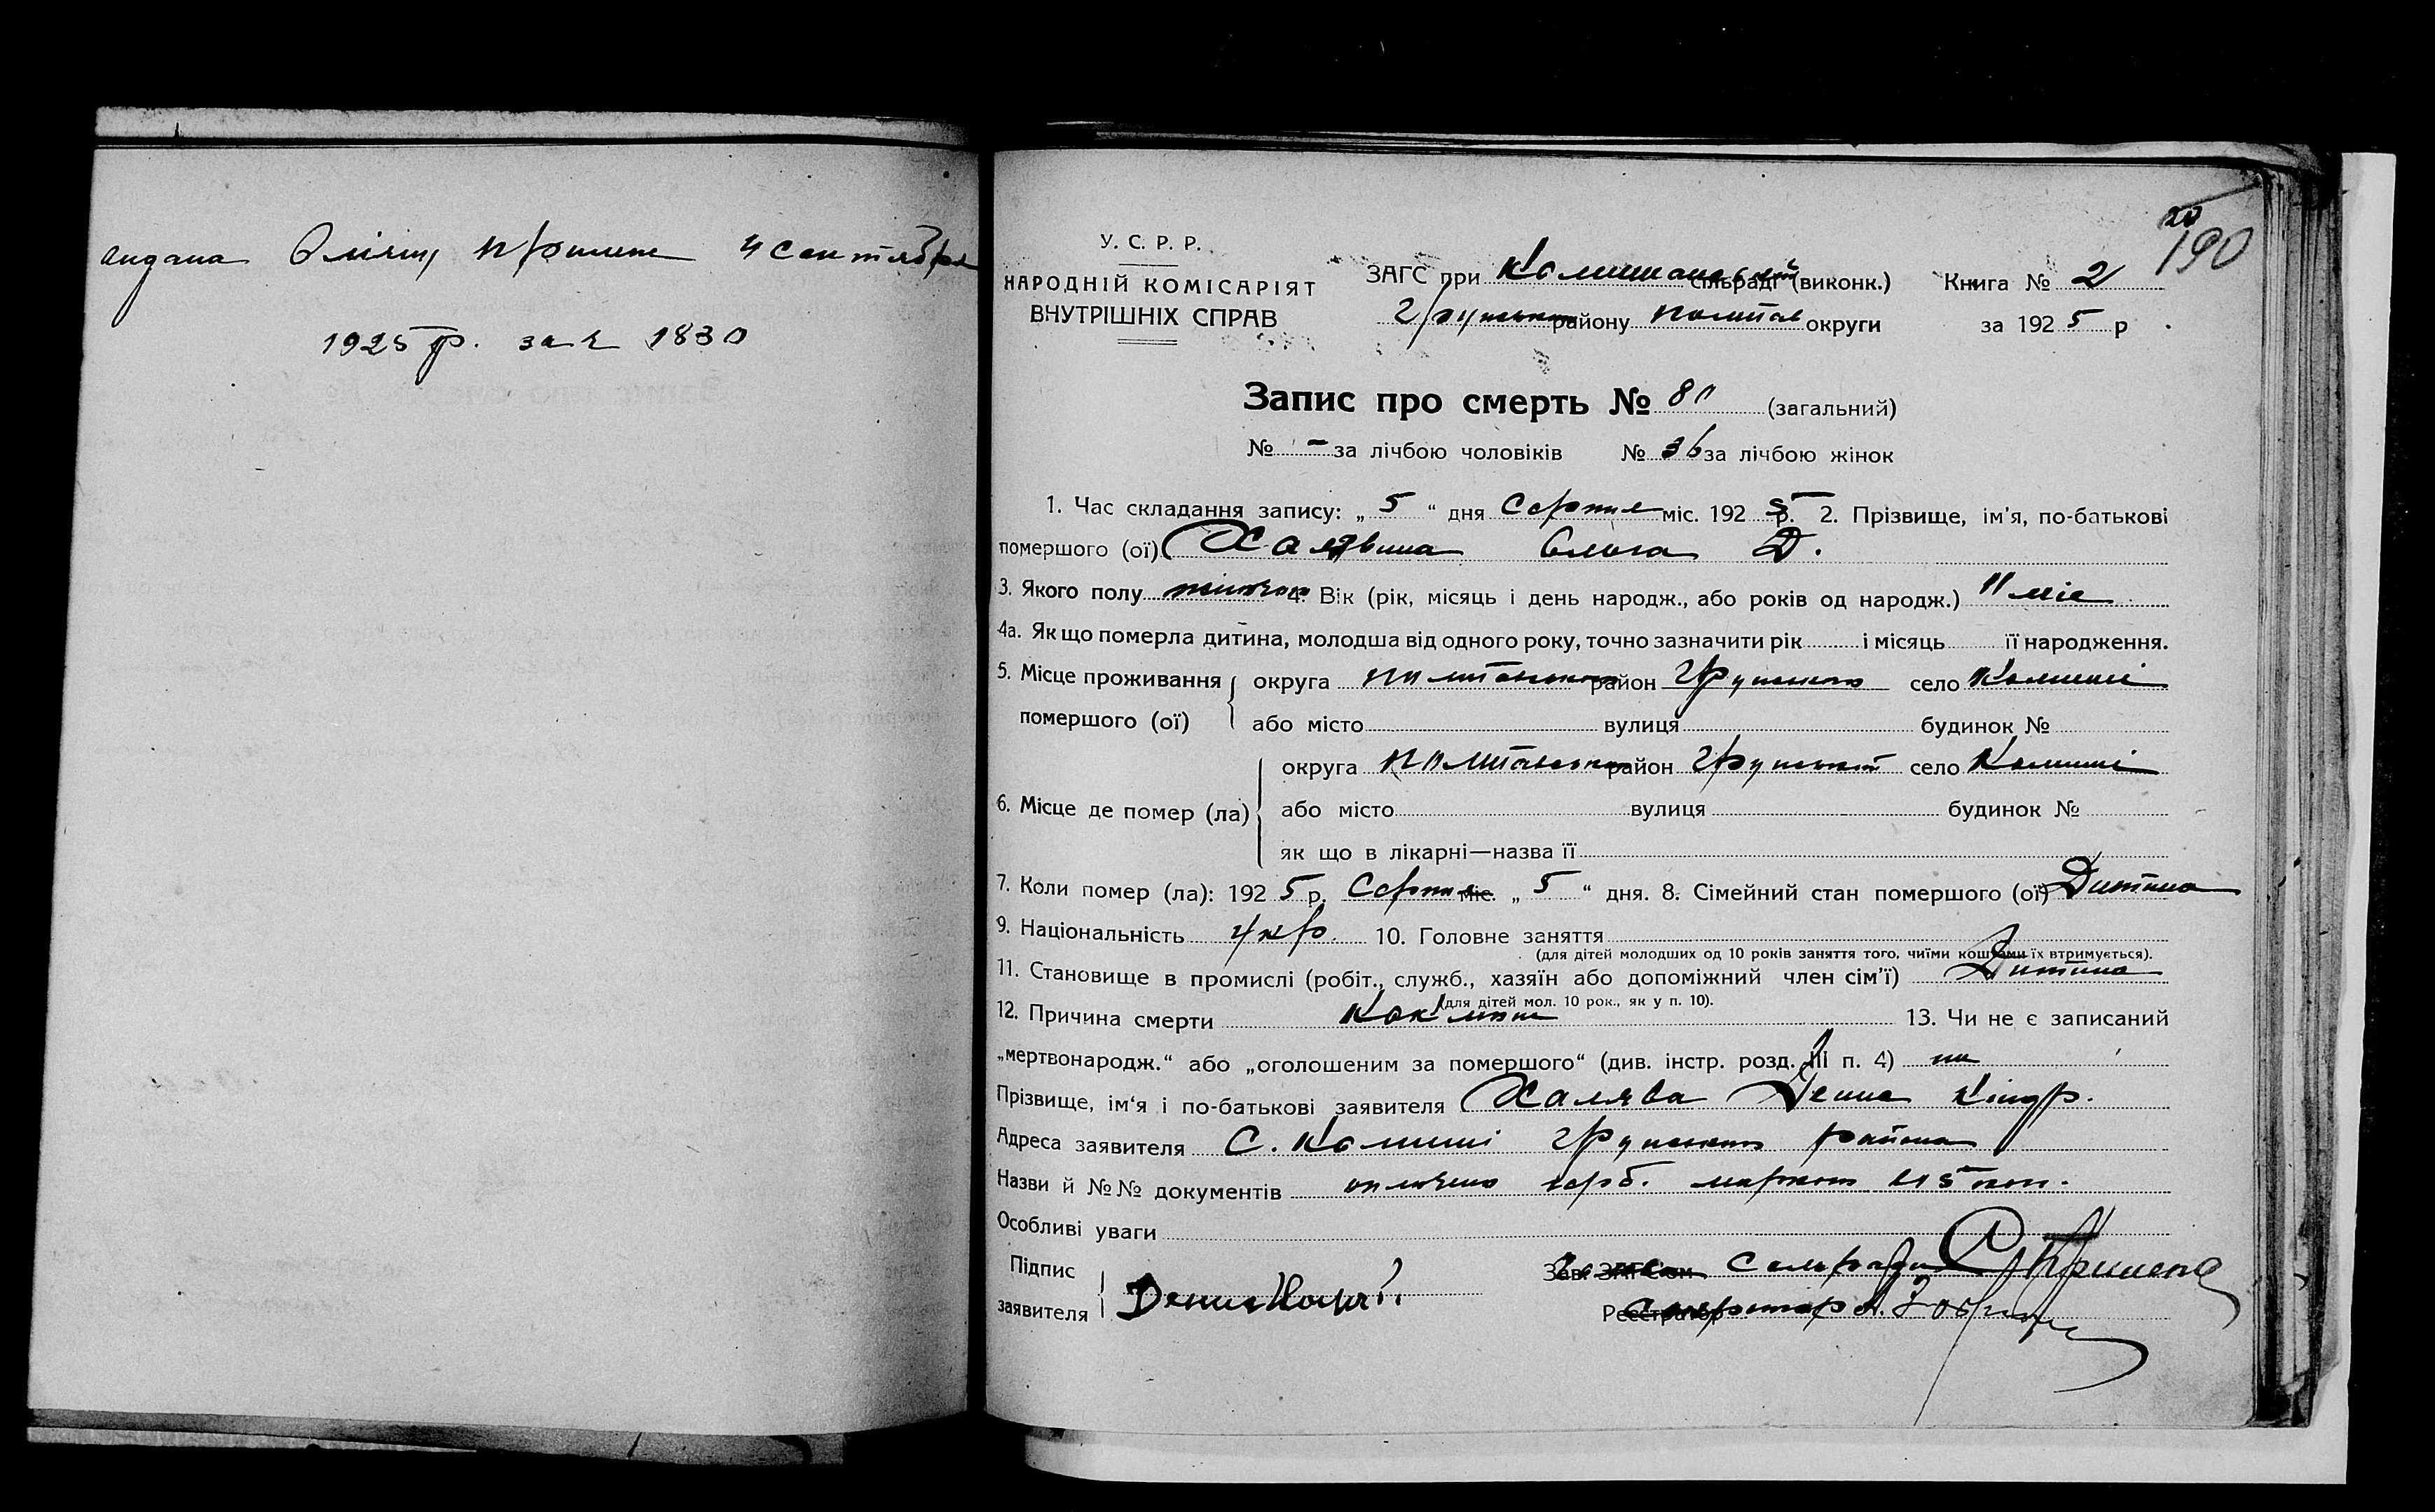 1925 р. за № 1830
20
190
У. С. Р. Р.
НАРОДНІЙ КОМІСАРІЯТ
ВНУТРІШНІХ СПРАВ
ЗАГС при сільраді (виконк.) Книга № 2
району Полтав округи за 1925 р.
Запис про смерть № 80 (загальний)
№ - за лічбою чоловіків № 36 за лічбою жінок
1. Час складання запису: „ 5 “ дня Серпня міс. 1925 р. 2. Прізвище, ім'я, по-батькові
помершого (ої) Халявина Ольга Д.
3. Якого полу жіночого 4. Вік (рік, місяць і день народж., або років од народж.) 11 міс
4а. Як що померла дитина, молодша від одного року, точно зазначити рік і місяць її народження.
5. Місце проживання помершого (ої) округа Полтавська район Грунського село Комиші
або місто вулиця будинок №
6. Місце де помер (ла) округа Полтавська район Грунський село Комиші
або місто вулиця будинок №
як що в лікарні—назва її
7. Коли помер (ла): 1925 р. Серпня міс. „ 5 “ дня. 8. Сімейний стан помершого (ої) Дитина
9. Національність укр. 10. Головне заняття
(для дітей молодших од 10 років заняття того, чиїми коштами їх втримується).
11. Становище в промислі (робіт., служб., хазяїн або допоміжний член сім'ї) Дитина
(для дітей мол. 10 рок., як у п. 10).
12. Причина смерти Коклюш 13. Чи не є записаний
„мертвонародж.“ або „оголошеним за помершого“ (див. інстр. розд. III п. 4) ні
Прізвище, ім'я і по-батькові заявителя Халява Денис Кіндр.
Адреса заявителя С. Комиші Грунського района
Назви й №№ документів оплочено герб. маркою 15 коп.
Особливі уваги
Підпис заявителя Денис
Зав. ЗАГС'ом Сельради
Реєстратор Секретар